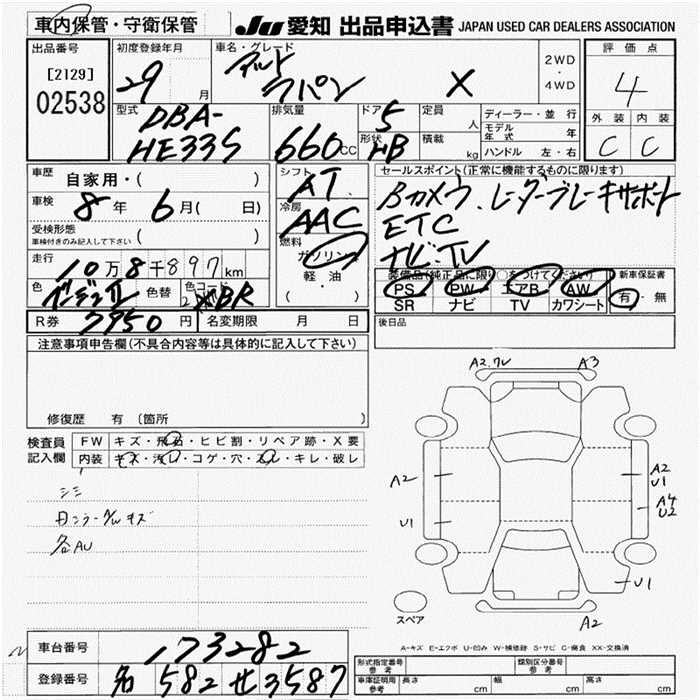 車内保管・守衛保管
JU 愛知 出品申込書 JAPAN USED CAR DEALERS ASSOCIATION
出品番号
[2129]
02538
初度登録年月
29 月
車名・グレード
アルト
ラパン X
2WD
・
4WD
評価点
4
外装 内装
C C
型式
DBA-
HE33S
排気量
660cc
ドア 5
形状 HB
定員 人
積載 kg
ディーラー・並行
モデル年式 年
ハンドル 左・右
車歴
自家用・( )
車検
8年 6月( 日)
受検形態
車検付きのみ記入して下さい ( )
走行
10万8千897km
色
色替
色コード
R券 7950円
名変期限 月 日
シフト
AT
冷房
AAC
燃料
ガソリン
軽・油
( )
セールスポイント(正常に機能するものに限ります)
Bカメラ、レーダーブレーキサポート
ETC
ナビ・TV
装備品(純正品に限り〇をつけてください)
PS PW エアB AW
SR ナビ TV カワシート
新車保証書
有・無
後日品
注意事項申告欄(不具合内容等は具体的に記入して下さい)
修復歴 有(箇所 )
検査員
記入欄
FW キズ・飛石・ヒビ割・リペア跡・X要
内装 キズ・汚レ・コゲ・穴・スレ・キレ・破レ
シミ
各AU
A2 A3
A2
U1
A2
U1
A4
U2
U1
A2
スペア
A-キズ E-エクボ U-凹み W-補修跡 S-サビ C-腐食 XX-交換済
車台番号 173282
登録番号 名 582 せ 3587
形式指定番号
参考
類別区分番号
参考
車庫証明用
参考
長さ cm
幅 cm
高さ cm